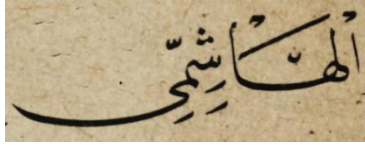 اَلْهَاشِمِّي